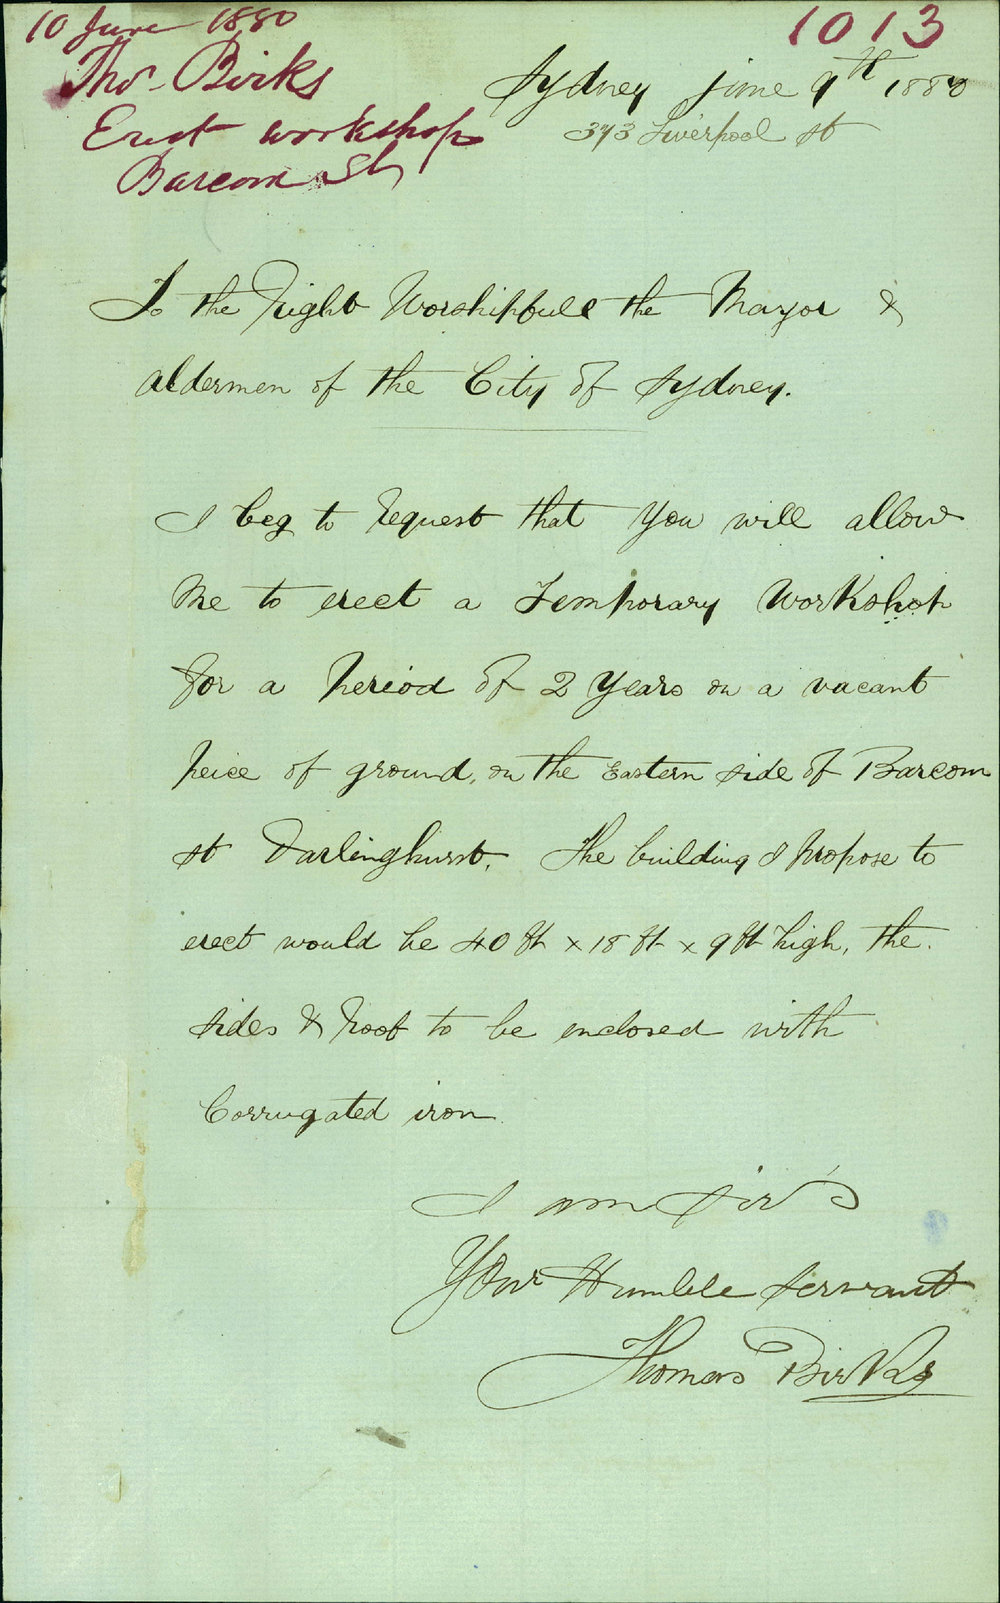 10 June 1880
1013
Thos. Birks
Erect workshop
Barcom St
Sydney June 9th 1880
373 Liverpool st
To the Right Worshipfull the Mayor &
Aldermen of the City of Sydney.
I beg to request that you will allow
me to erect a Temporary Workshop
for a Period of 2 Years on a vacant
peice of ground, on the Eastern side of Barcom
st Darlinghurst. The building I propose to
erect would be 40 ft × 18 ft × 9 ft high, the
sides & roof to be enclosed with
Corrugated iron
I am Sir's
Your Humble Servant
Thomas Birks